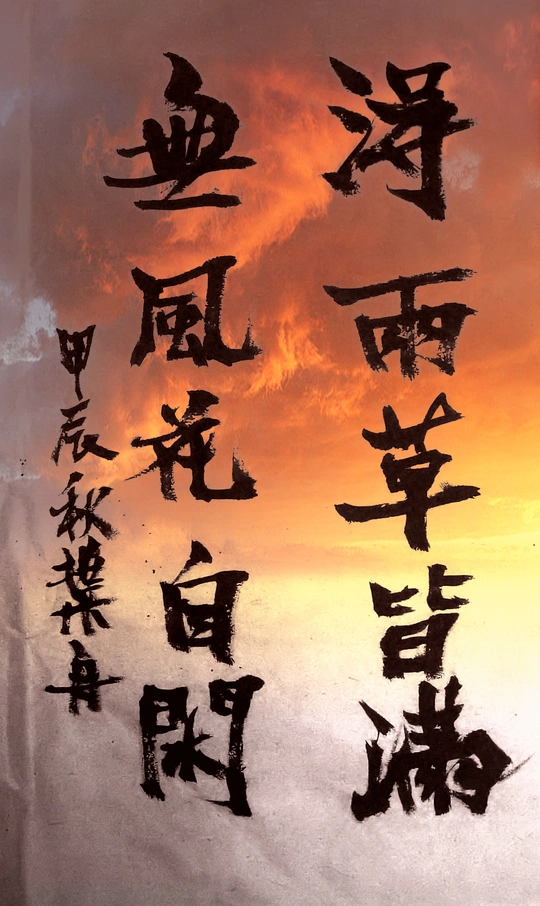 淂雨草皆滿
無風花自閑
甲辰秋葉舟